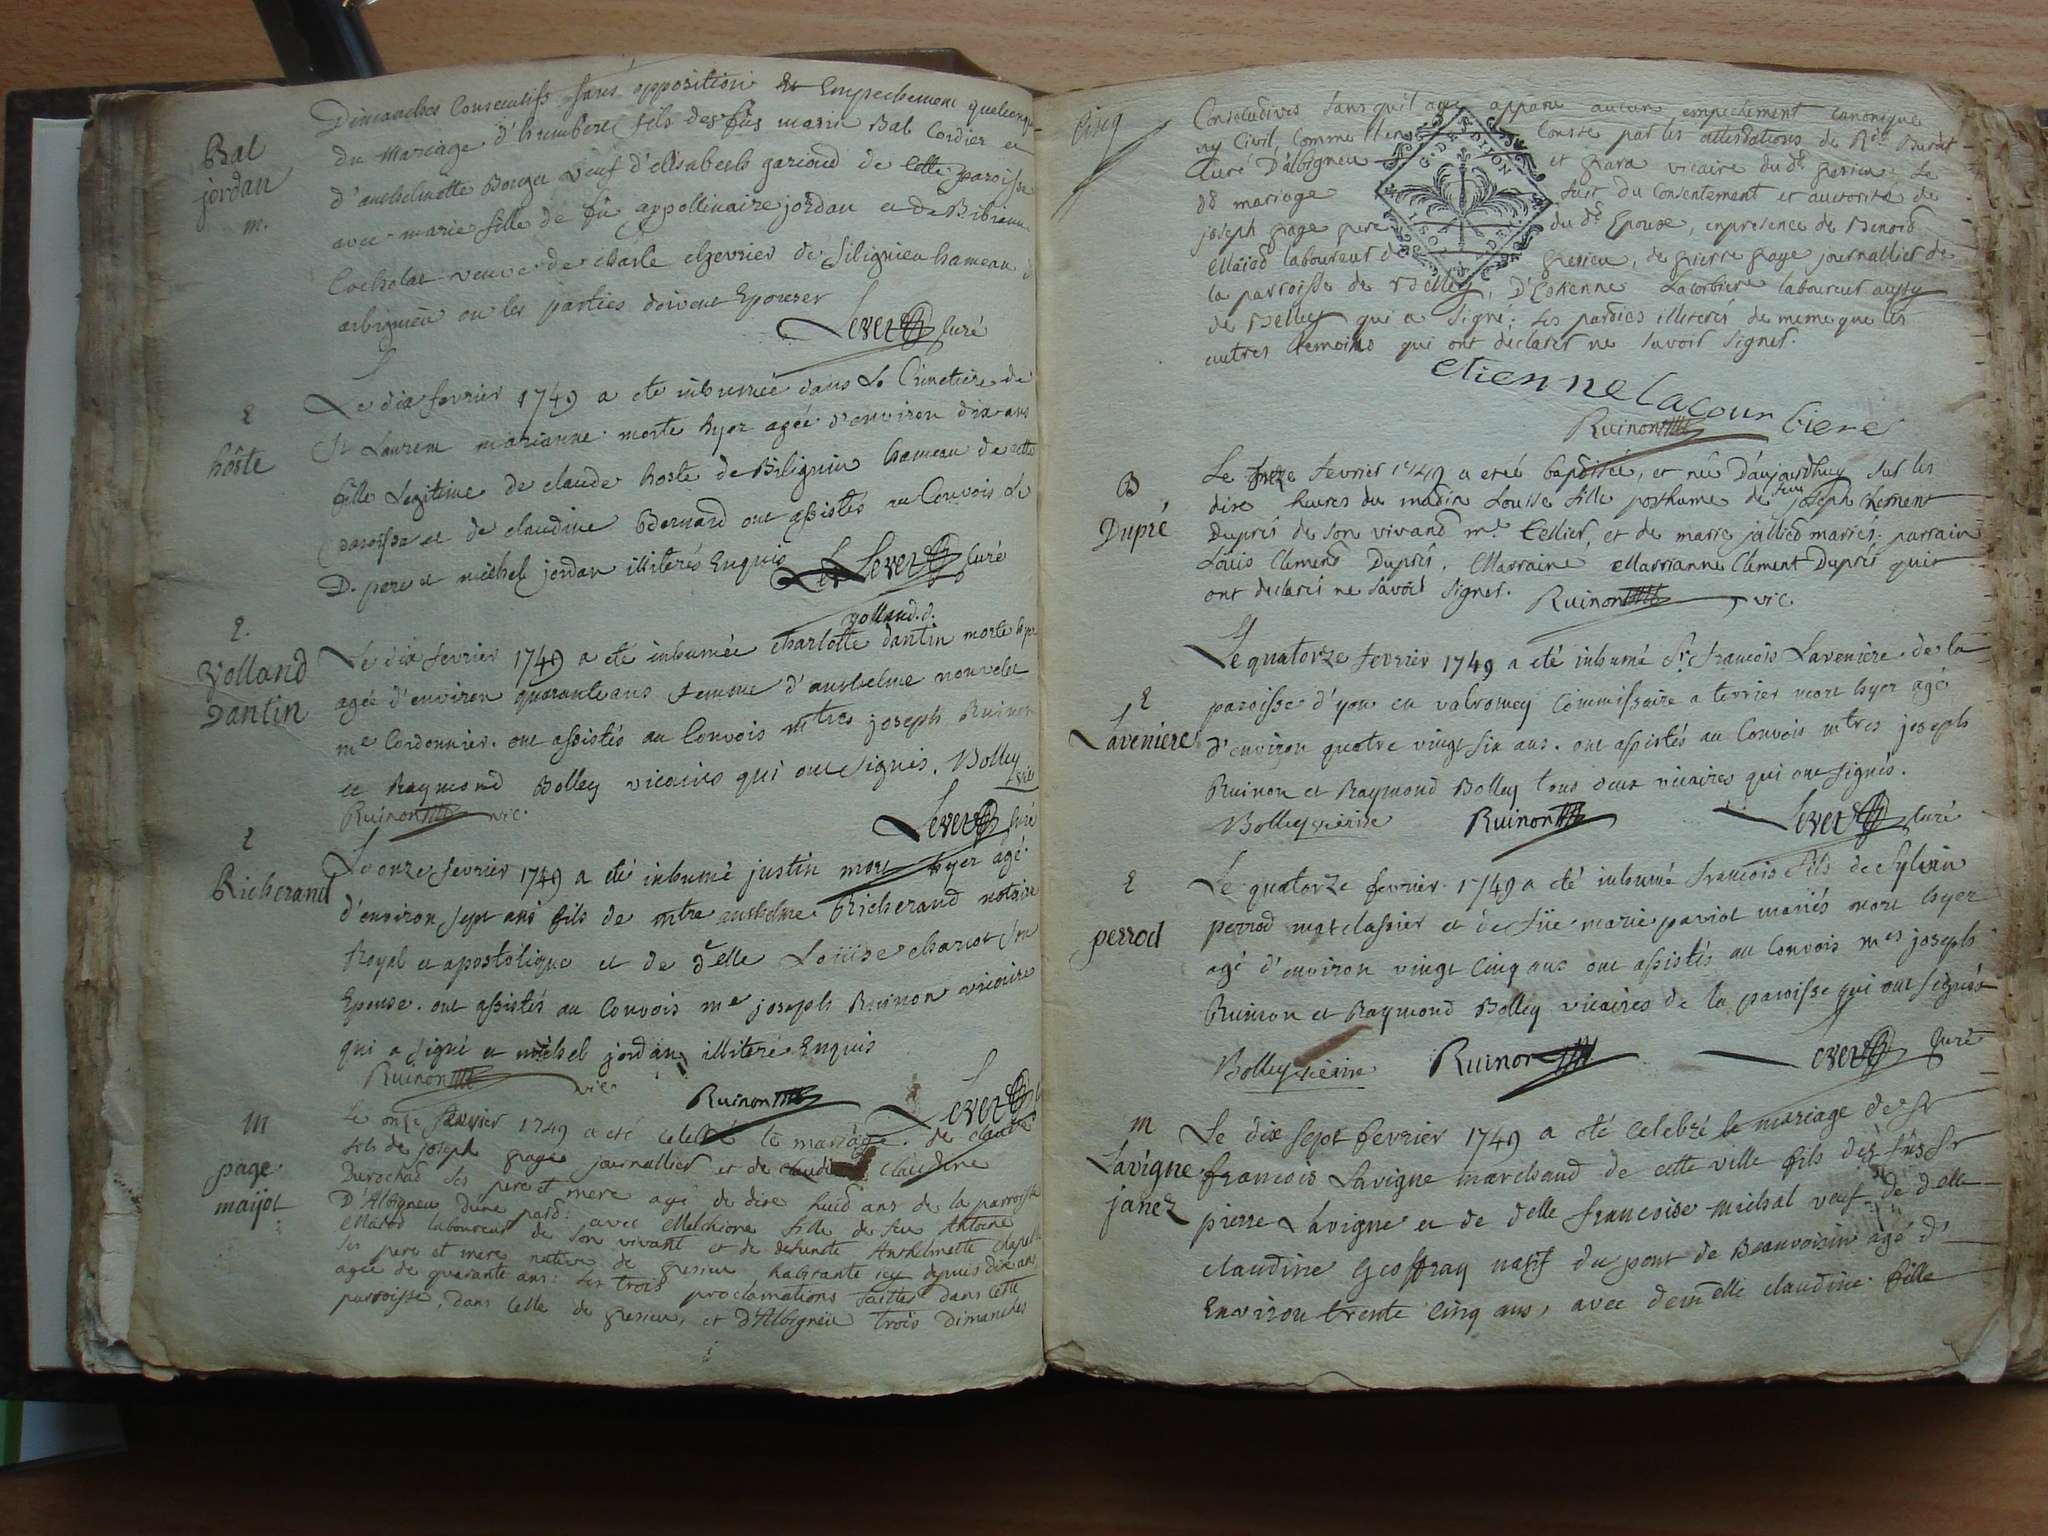 Bal
jordan
m.
Dimanches Consecutifs sans opposition et Empechement quelconque
du Mariage d'humbert fils des fûs marin Bal Cordier et
d'anthelmette Bouge veuf d'elisabeth gariond de cette paroisse
avec marie fille de fû appollinaire jordan et de
veuve de charle chevrier de Silignieu hameau
arbignieu ou les parties doivent Epouser
Sevez Curé
hôste
Le dix fevrier 1749 a eté inhumée dans Le Cimetiere de
St Laurent marianne morte hyer agée d'environ dix ans
fille Legitime de claude hoste de Bilignin hameau de cette
paroisse et de claudine Bernard ont assistés au Convois Le
D. pere et michel jordan illiterés Enquis
Sevez Curé
Volland
Dantin
volland. d.
Le dix fevrier 1749 a eté inhumée charlotte dantin morte hyer
agée d'environ quarante ans femme d'anthelme nouvelet
me Cordonnier. ont assistés au Convois mtres joseph Ruinon
et Raymond Bolley vicaires qui ont signés. Bolley
Ruinon vic.
Sevez Curé
Richerand
Le onze fevrier 1749 a eté inhumé justin mort hyer agé
d'environ sept ans fils de mtre anthelme Richerand notaire
Royal et apostolique et de delle Louise chariot son
Epouse. ont assistés au Convois me joseph Ruinon vicaire
qui a signé et michel jordan illiteré Enquis
Ruinon vic.
Ruinon
Sevez
m
page
maijot
Le onze fevrier 1749 a eté celebré le mariage de claude
fils de joseph page journallier et de claudine
Durochad ses pere et mere agé de dix huid ans de la parroisse
D'Albigneu dune pard: avec Melchione fille de feu Antoine
Maiod laboureur de son vivant et de defuncte Anthelmette chapelle
ses pere et mere native de gresieu habitante icy depuis dix ans
agée de quarante ans: les trois proclamations faittes dans cette
parroisse, dans celle de gresieu, et d'Albigneu trois dimanches
Cinq
Consecutives sans qu'il aye apparu aucun empechement canonique
ny Civil, comme Conste par les attestations de Rd Burdet
Curé D'albigneu et gara vicaire du dt gresieu. Le
dt mariage fait du Consentement et autorité de
joseph page pere du dt Epoux, en presence de Benoid
Maiod laboureur de gresieu, de pierre page journallier de
la parroisse de Belley, D'Estienne Lacorbiere laboureur aussy
de Belley qui a signé; les parties illiterés de meme que les
autres temoins qui ont declarer ne savoir signer.
etienne lacourbiere
Ruinon
B
Dupré
Le treze fevrier 1749 a eteé baptisée, et née d'aujourdhuy sur les
dix heures du matin Louise fille posthume de feu joseph Clement
Duprés de son vivand me Cellier, et de marie jallied mariés. parrain
Louis Clement Duprés, Marraine Marrianne Clement Duprés qui
ont declarés ne savoir signer. Ruinon vic.
Lavenière
Le quatorze fevrier 1749 a été inhumé Sr francois Laveniere de la
paroisse d'yon en valromey Commissaire a terrier mort hyer agé
d'environ quatre vingt six ans. ont assistés au Convois mtres joseph
Ruinon et Raymond Bolley tous deux vicaires qui ont signés.
Bolley vicaire Ruinon Sevez Curé
perrod
Le quatorze fevrier 1749 a eté inhumé francois fils de Sylvin
perrod matelassier et de fûe marie paviot mariés mort hyer
agé d'environ vingt Cinq ans ont assistés au Convois mes joseph
Ruinon et Raymond Bolley vicaires de la paroisse qui ont signés
Bolley vicaire Ruinon Sevez Curé
m
Lavigne
janez
Le dix sept fevrier 1749 a eté Celebré le mariage de Sr
francois Lavigne marchand de cette ville fils des fûs Sr
pierre Lavigne et de delle francoise michal veuf de delle
claudine Geoffray natif du pont de Beauvoisin agé d'
Environ trente Cinq ans, avec demelle claudine fille